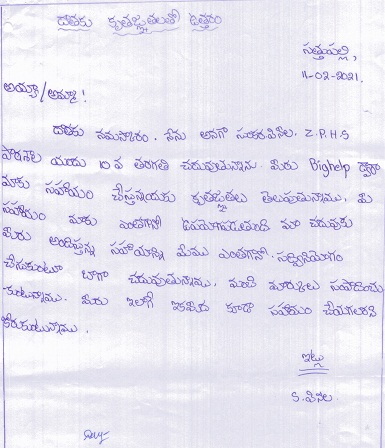 దాతకు కృతజ్ఞతలతో ఉత్తరం
సత్తుపల్లి,
11-02-2021.
అయ్యా/అమ్మా!
దాతకు నమస్కారం. నేను అనగా Z.P.H.S
పాఠశాల యందు 10 వ తరగతి చదువుతున్నాను. మీరు Bighelp ద్వారా
మాకు సహాయం చేస్తున్నందుకు కృతజ్ఞతలు తెలుపుతున్నాము. మీ
సహాయం మాకు ఎంతగానో ఉపయోగపడుతుంది మా చదువుకు
మీరు అందిస్తున్న సహాయాన్ని మేము ఎంతగానో సద్వినియోగం
చేసుకుంటూ బాగా చదువుతున్నాము. మంచి మార్కులు సంపాదించు
కుంటున్నాము. మీరు ఇలాగే ఇకమీద కూడా సహాయం చేయగలరని
కోరుకుంటున్నాము.
ఇట్లు
S.